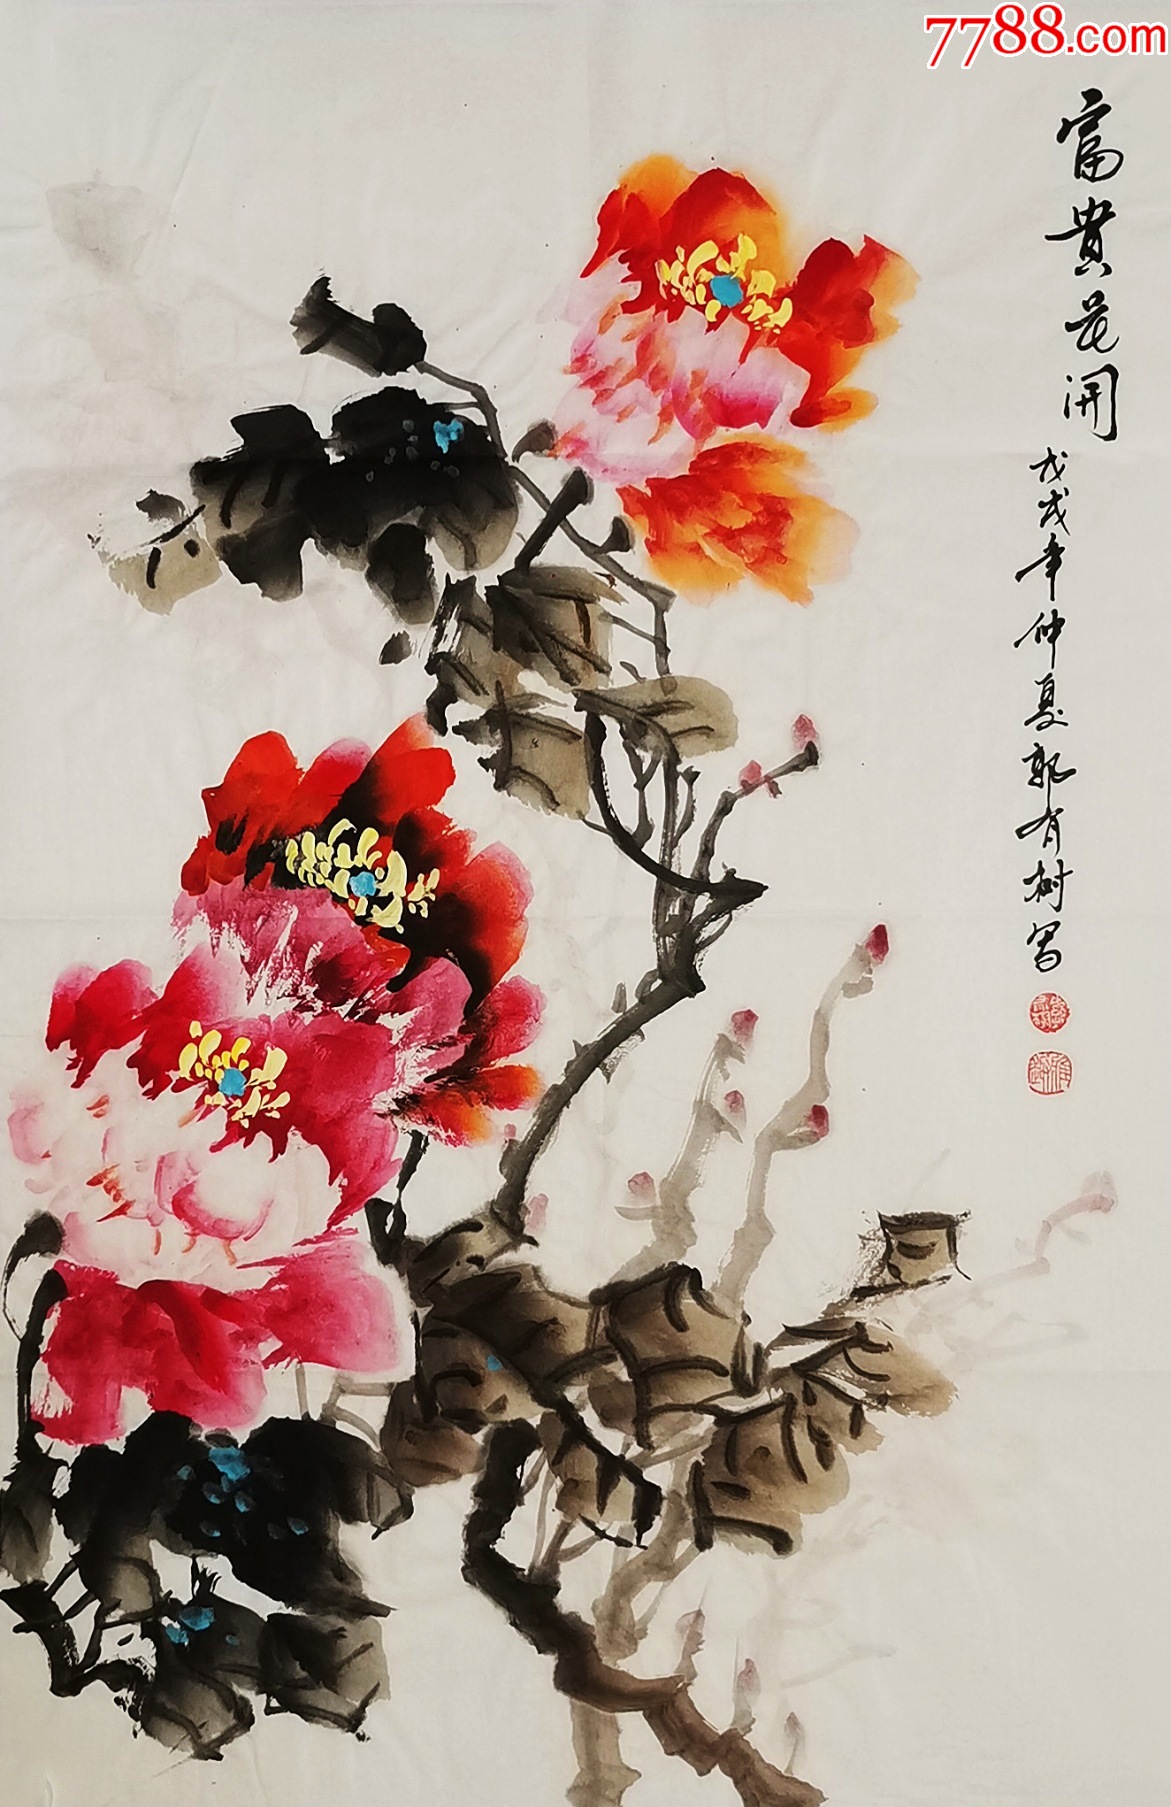 7788.com
富貴花開
戊戌年仲夏郭有樹写